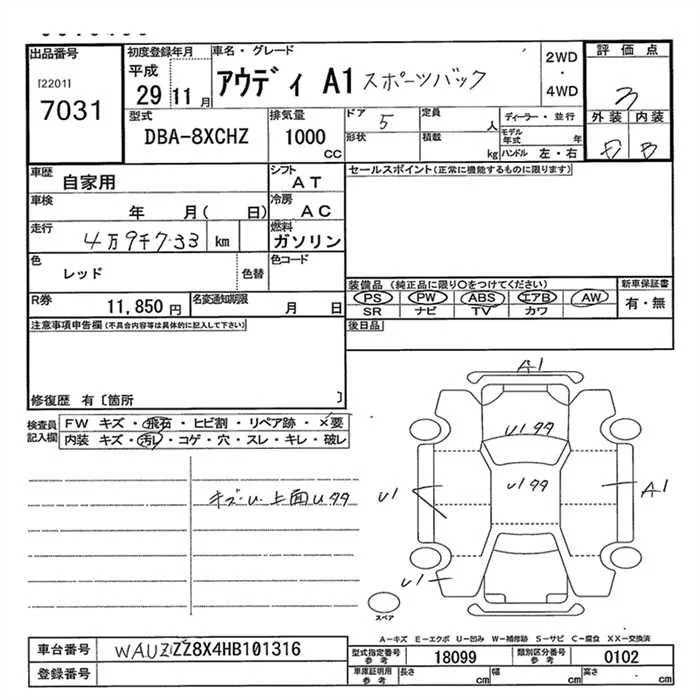 出品番号
[2201]
7031
初度登録年月
平成
29 11月
車名・グレード
アウディ A1 スポーツバック
2WD
・
4WD
評価点
3
外装 内装
B
型式
DBA-8XCHZ
排気量
1000
CC
ドア 5
形状
定員
人
積載
kg
ディーラー・並行
モデル年式 年
ハンドル 左・右
車歴
自家用
シフト
AT
車検
年 月( 日)
冷房
AC
走行
4万9千733 km
燃料
ガソリン
色
レッド
色替
色コード
R券
11,850 円
名変通知期限
月 日
セールスポイント(正常に機能するものに限ります)
装備品 (純正品に限り○をつけてください)
PS PW ABS エアB AW
SR ナビ TV カワ
新車保証書
有・無
後日品
注意事項申告欄(不具合内容等は具体的に記入して下さい)
修復歴 有〔箇所 〕
検査員記入欄
FW キズ・飛石・ヒビ割・リペア跡・×要
内装 キズ・汚レ・コゲ・穴・スレ・キレ・破レ
キズ・U. 上面U99
A1
U199
U199
U1
A1
U1
スペア
A-キズ E-エクボ U-凹み W-補修跡 S-サビ C-腐食 XX-交換済
車台番号
WAUZZZ8X4HB101316
登録番号
型式指定番号参考
18099
類別区分番号参考
0102
車庫証明用参考
長さ cm
幅 cm
高さ cm